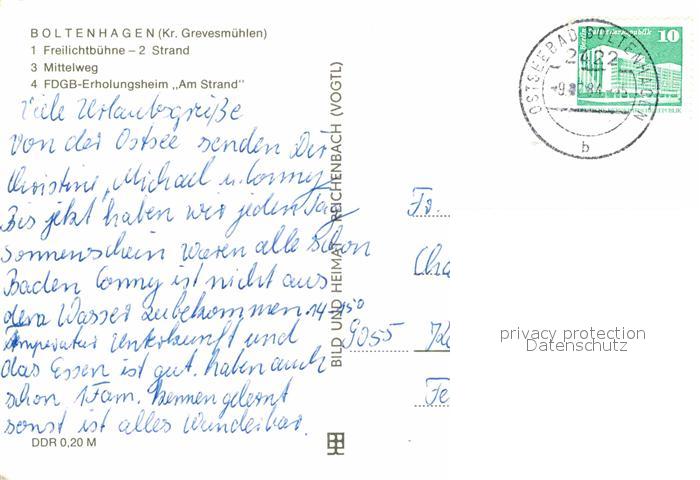 BOLTENHAGEN (Kr. Grevesmühlen)
1 Freilichtbühne – 2 Strand
3 Mittelweg
4 FDGB-Erholungsheim „Am Strand"
Viele Urlaubsgrüße
von der Ostsee senden Dir
Christine, Michael u. Conny
Bis jetzt haben wir jeden Tag
Sonnenschein waren alle schon
Baden Conny ist nicht aus
dem Wasser zubekommen 14-15°
Temperatur Unterkunft und
das Essen ist gut. haben auch
schon 1 Fam. kennengelernt
sonst ist alles Wunderbar.
DDR 0,20 M
BILD UND HEIMAT REICHENBACH (VOGTL)
OSTSEEBAD BOLTENHAGEN
2422
b
10
Fr.
Cha
9055
Fe
privacy protection
Datenschutz